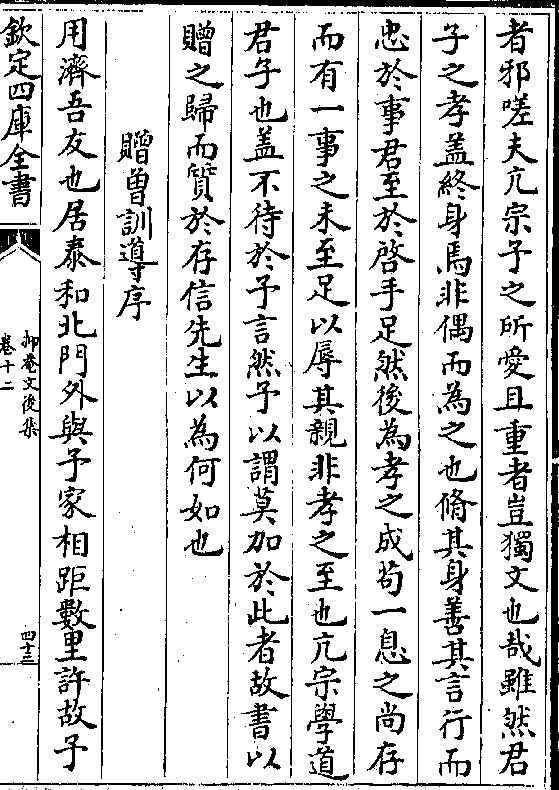 者邪嗟夫亢宗子之所愛且重者豈獨文也哉雖然君
子之孝盖終身焉非偶而為之也脩其身善其言行而
忠於事君至於啓手足然後為孝之成茍一息之尚存
而有一事之未至足以辱其親非孝之至也亢宗學道
君子也盖不待於予言然予以謂莫加於此者故書以
贈之歸而質於存信先生以為何如也
贈曽訓導序
用濟吾友也居泰和北門外與予家相距數里許故予
欽定四庫全書
抑菴文後集
卷十二
四十三